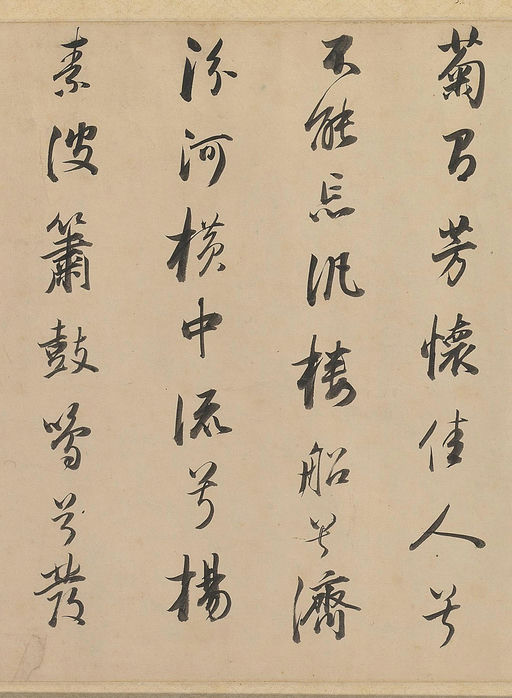 菊有芳懷佳人兮
不能忘汎樓船兮濟
汾河横中流兮楊
素波簫鼓鳴兮發